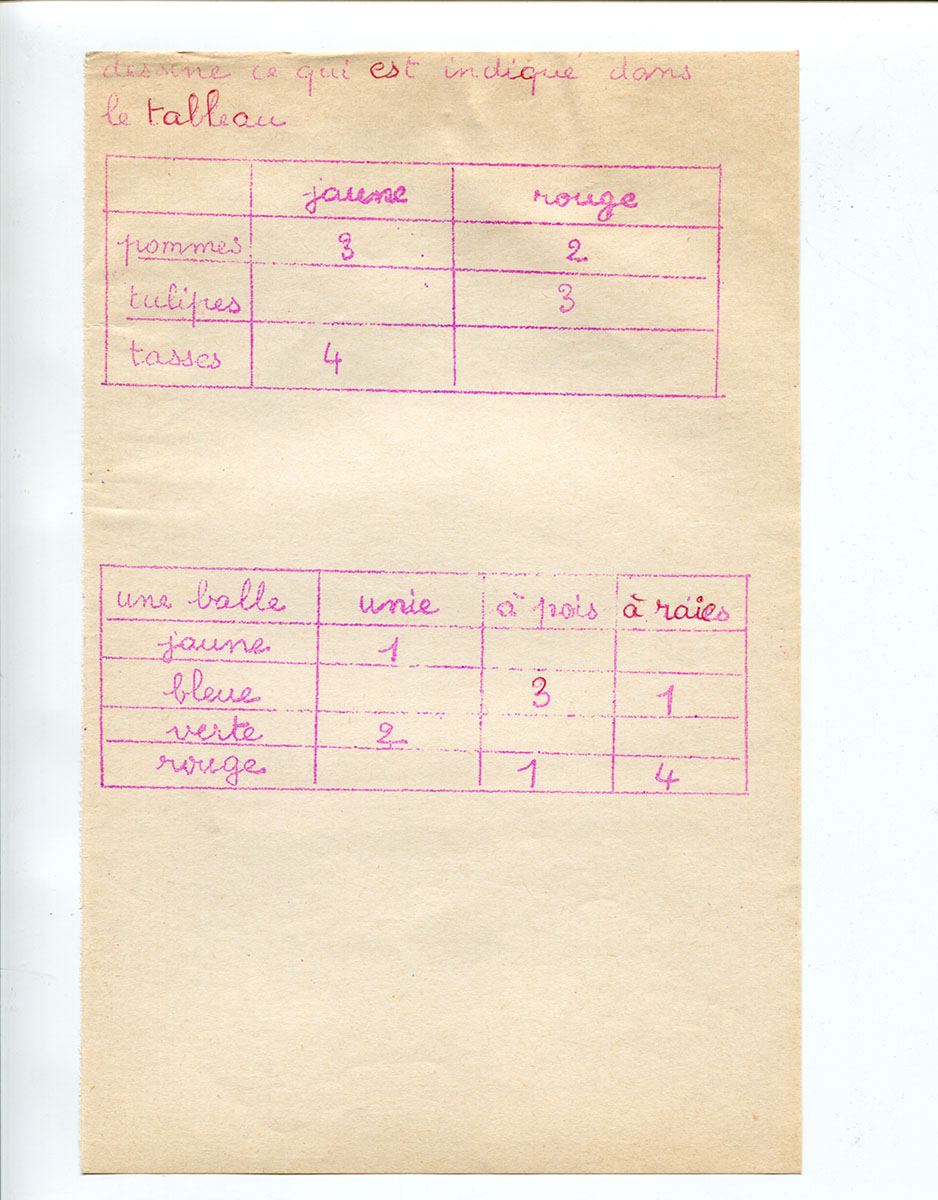 dessine ce qui est indiqué dans
le tableau
jaune rouge
pommes 3 2
tulipes 3
tasses 4
une balle unie à pois à raies
jaune 1
bleue 3 1
verte 2
rouge 1 4